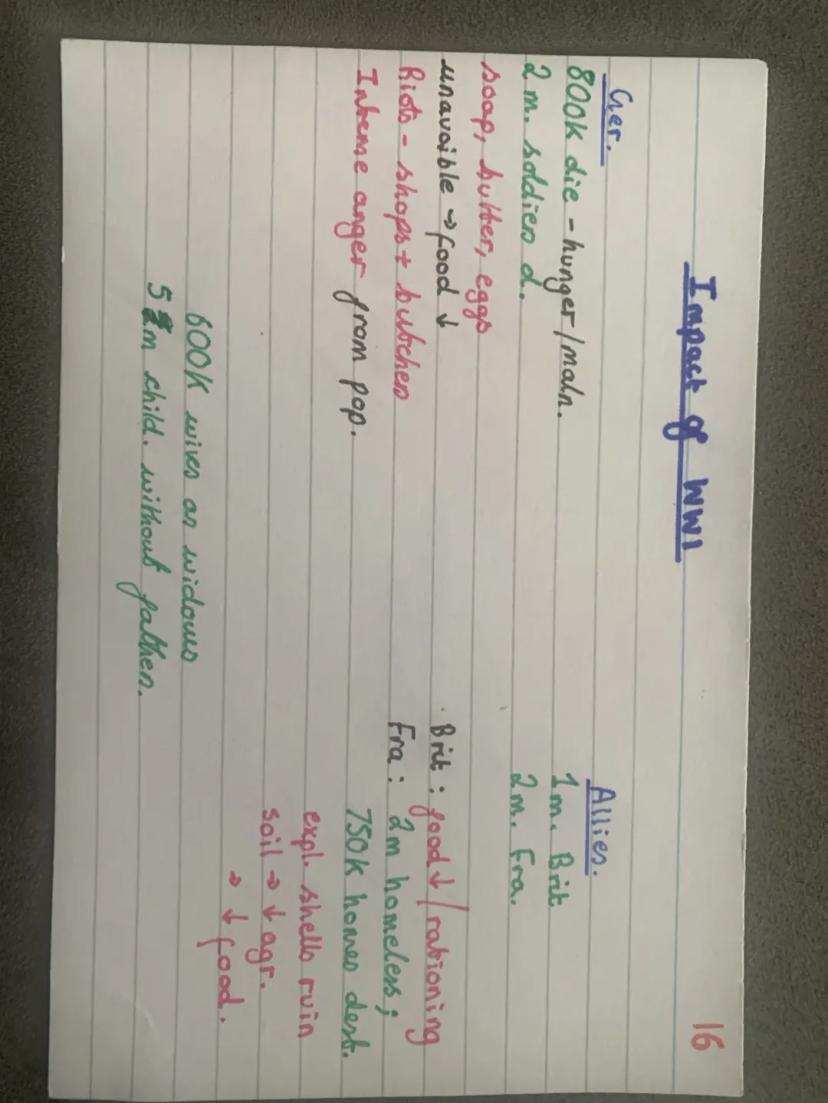 16
Impact of WW1
Ger.
800K die - hunger/maln.
2 m. soldiers d.
soap, butter, eggs
unavaible → food ↓
Riots - shops + butchers
Intense anger from pop.
Allies.
1m. Brit
2m. Fra.
Brit : food ↓ / rationing
Fra : 2m homeless ;
750K homes dest.
expl. shells ruin
soil → ↓ agr.
→ ↓ food.
600K wives as widows
5 m child. without fathers.